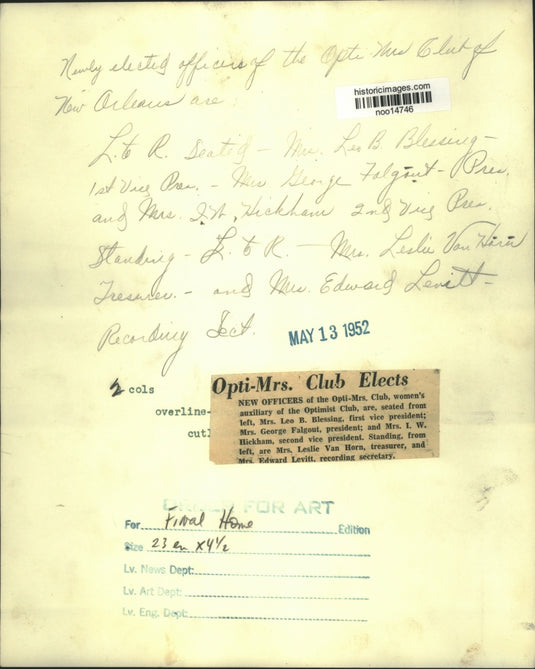 Newly elected officers of the Opti Mrs Club of
New Orleans are:
historicimages.com
noo14746
L. to R. Seated - Mrs. Leo B. Blessing -
1st Vice Pres. - Mrs George Falgout - Pres.
and Mrs. I.W. Hickham 2nd Vice Pres.
Standing - L. to R. - Mrs. Leslie Van Horn
Treasurer. - and Mrs. Edward Levitt -
Recording Sect.
MAY 13 1952
2 cols
overline-
cutl
Opti-Mrs. Club Elects
NEW OFFICERS of the Opti-Mrs. Club, women's
auxiliary of the Optimist Club, are, seated from
left, Mrs. Leo B. Blessing, first vice president;
Mrs. George Falgout, president; and Mrs. I. W.
Hickham, second vice president. Standing, from
left, are Mrs. Leslie Van Horn, treasurer, and
Mrs. Edward Levitt, recording secretary.
ORDER FOR ART
For Final Home Edition
Size 23 em x 4 1/2
Lv. News Dept:
Lv. Art Dept:
Lv. Eng. Dept: